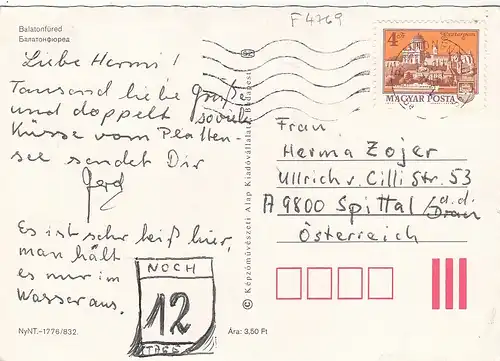 Balatonfüred
Балатонфюред
F4769
Liebe Hermi!
Tausend liebe Grüße
und doppelt soviele
Küsse vom Platten-
see sendet Dir
Gerd
Es ist sehr heiß hier,
man hält
es nur im
Wasser aus.
NOCH
12
TAGE
NyNT.–1776/832.
Ára: 3,50 Ft
© Képzőművészeti Alap Kiadóvállalata, Budapest
4 Ft
Esztergom
MAGYAR POSTA
Frau
Herma Zojer
Ullrich v. Cilli Str. 53
A 9800 Spittal a.d.
Drau
Österreich